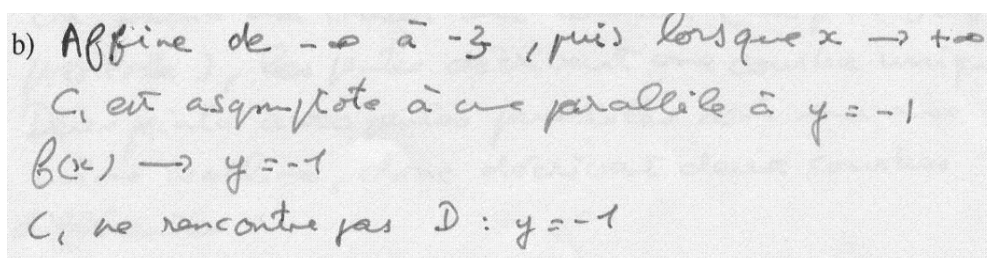 b) Affine de -∞ à -3, puis lorsque x → +∞
C₁ est asymptote à une parallèle à y = -1
f(x) → y = -1
C₁ ne rencontre pas D : y = -1